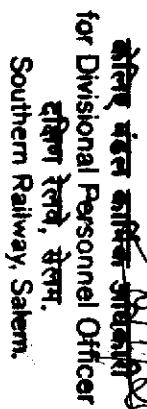 कृते मंडल कार्मिक अधिकारी
for Divisional Personnel Officer
दक्षिण रेलवे, सेलम.
Southern Railway, Salem.